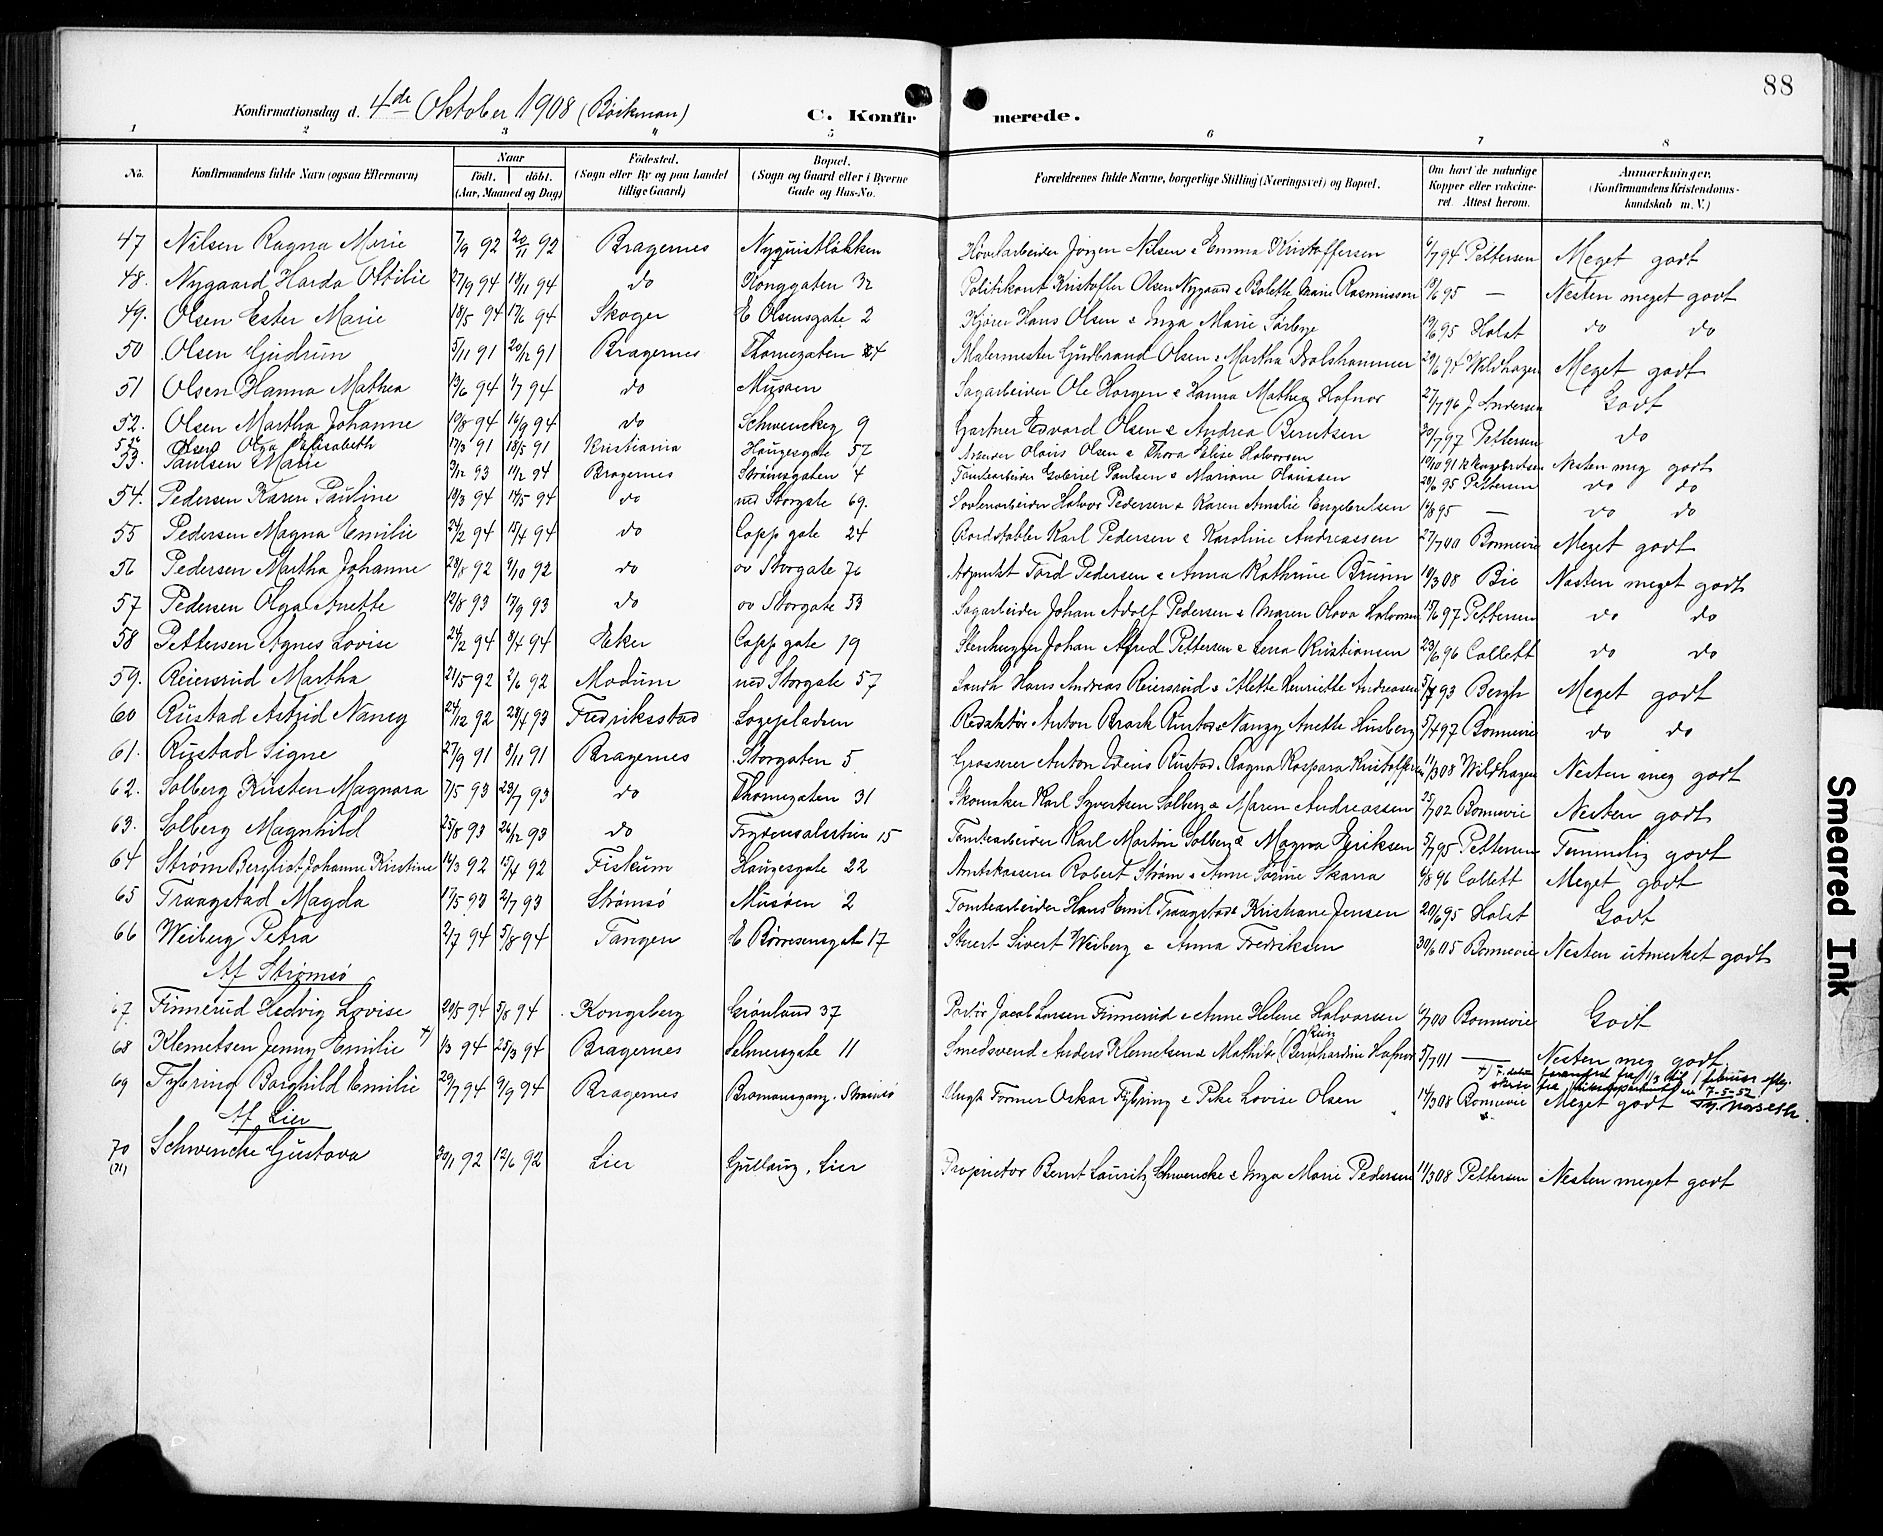 88
Konfirmationsdag d. 4de Oktober 1908 (Böckman)
C. Konfirmerede.
1 2 3 4 5 6 7 8
No. Konfirmandens fulde Navn (ogsaa Efternavn) Naar födt. döbt. (Aar, Maaned og Dag) Födested. (Sogn eller By og paa Landet tillige Gaard) Bopæl. (Sogn og Gaard eller i Byerne Gade og Hus-No. Forældrenes fulde Navne, borgerlige Stilling (Næringsvei) og Bopæl. Om havt de naturlige Kopper eller vakcineret. Attest herom. Anmærkninger. (Konfirmandens Kristendomskundskab m. V.)
47 Nilsen Ragna Marie 7/9 92 20/11 92 Bragernes Nyquistløkken Høvelarbeider Jørgen Nilsen & Emma Kristoffersen 6/7 94 Pettersen Meget godt
48. Nygaard Harda Ottilie 27/9 94 18/11 94 do Konggaten 32 Politikonst Kristoffer Olsen Nygaard & Bolette Marie Rasmussen 19/6 95 — Nesten meget godt
49. Olsen Ester Marie 18/5 94 17/6 94 Skoger E Olsensgate 2 Kjører Hans Olsen & Inga Marie Sørbye 19/6 95 Holst do do
50 Olsen Gudrun 5/11 91 20/12 91 Bragernes Thornegaten 4 Malermester Gudbrand Olsen & Martha Dolshammer Wildhagen Meget godt
51 Olsen Hanna Mathea 13/6 94 1/7 94 do Musøen Sagarbeider Ole Horgen & Hanna Mathea Hafnor 27/7 96 J Andersen Godt
52. Olsen Martha Johanne 19/8 94 16/9 94 do Schwenckeg 9 Gartner Edvard Olsen & Andrea Berntsen 30/7 97 Pettersen do
Olsen Olga Elisabeth 17/3 91 18/5 91 Kristiania Haugesgate 57 Olaus Olsen & Thora Elise Halvorsen 19/10 91 Nesten meg godt
53. Paulsen Marie 3/12 93 11/2 94 Bragernes Strømsgaten 4 Tomtearbeider Gabriel Paulsen & Mariane Olaussen 20/6 95 Pettersen do do
54. Pedersen Karen Pauline 19/3 94 14/5 94 do ned Storgate 69. Halvor Pedersen & Karen Amalie Engebretsen — do do
55 Pedersen Magna Emilie 24/2 94 15/4 94 do Coppgate 24 Bordstabler Karl Pedersen & Karoline Andreassen 27/7 00 Bonnevie Meget godt
56 Pedersen Martha Johanne 23/8 92 9/10 92 do ov Storgate 76 Adjunkt Tord Pedersen & Anna Kathrine Bruun 19/3 08 Bie Nesten meget godt
57 Pedersen Olga Anette 12/8 93 17/9 93 do ov Storgate 53 Sagarbeider Johan Adolf Pedersen & Maren Olova Halvorsen 15/6 97 Pettersen do do
58 Pettersen Agnes Lovise 24/2 94 8/4 94 Eker Coppgate 19 Stenhugger Johan Alfred Pettersen & Lena Kristiansen 23/6 96 Collett do do
59. Reiersrud Martha 21/5 92 2/6 92 Modum ned Storgate 57 Hans Andreas Reiersrud & Alette Henriette Andreasen 5/7 93 Bergh Meget godt
60 Rustad Astrid Nancy 24/12 92 23/4 93 Fredriksstad Logepladsen Redaktør Anton Brask Rustad & Nanzy Anette Husberg 5/4 97 Bonnevie do do
61. Rustad Signe 27/9 91 8/11 91 Bragernes Storgaten 5 Grosserer Anton Denis Rustad & Ragna Kaspara Kristoffersen 11/3 08 Wildhagen Nesten meg godt
62. Solberg Kirsten Magnora 7/5 93 23/7 93 do Thornegaten 31 Skomaker Karl Syvertsen Solberg & Maren Andreassen 25/7 02 Bonnevie Nesten godt
63. Solberg Magnhild 25/8 93 26/12 93 do 15 Tomtearbeider Karl Martin Solberg & Magna Eriksen 5/7 95 Pettersen Temmelig godt
64 Strøm Bergliot Johanne Kristine 14/3 92 15/4 92 Fiskum Haugesgate 22 Amtskasserer Robert Strøm & Anne Sørine Skarra 6/8 96 Collett Meget godt
65 Traagstad Magda 17/5 93 2/7 93 Strømsø Musøen 2 Tomtearbeider Hans Emil Traagstad & Kristiane Jensen 20/6 95 Holst Godt
66 Weiberg Petra 2/7 94 5/8 94 Tangen E Børresensgate 17 Stuert Sivert Weiberg & Anna Fredriksen 30/6 05 Bonnevie Nesten utmerket godt
Af Strømsø
67. Finnerud Hedvig Lovise 20/5 94 5/8 94 Kongsberg Grønland 37 Jacob Larsen Finnerud & Anne Helene Halvorsen 6/7 00 Bonnevie Godt
68 Klemetsen Jenny Emilie +) 1/3 94 25/3 94 Bragernes Selmersgate 11 Smedsvend Anders Klemetsen & Mathilde Bernhardine Hafnor 5/7 01 — Nesten meg godt
+) F. dato forandret fra 1/3 til 1 februar efter
skriv fra 7-5-52
69 Fybring Borghild Emilie 20/7 94 9/9 94 Bragernes Bromansgang. Strømsø Ungk Former Oskar Fybring & Pike Lovise Olsen 14/3 08 Bonnevie Meget godt
Af Lier
70 (71) Schwencke Gustava 30/1 92 12/6 92 Lier Gullaug, Lier Proprietør Bernt Lauritz Schwencke & Inga Marie Pedersen 11/3 08 Pettersen Nesten meget godt
Smeared Ink